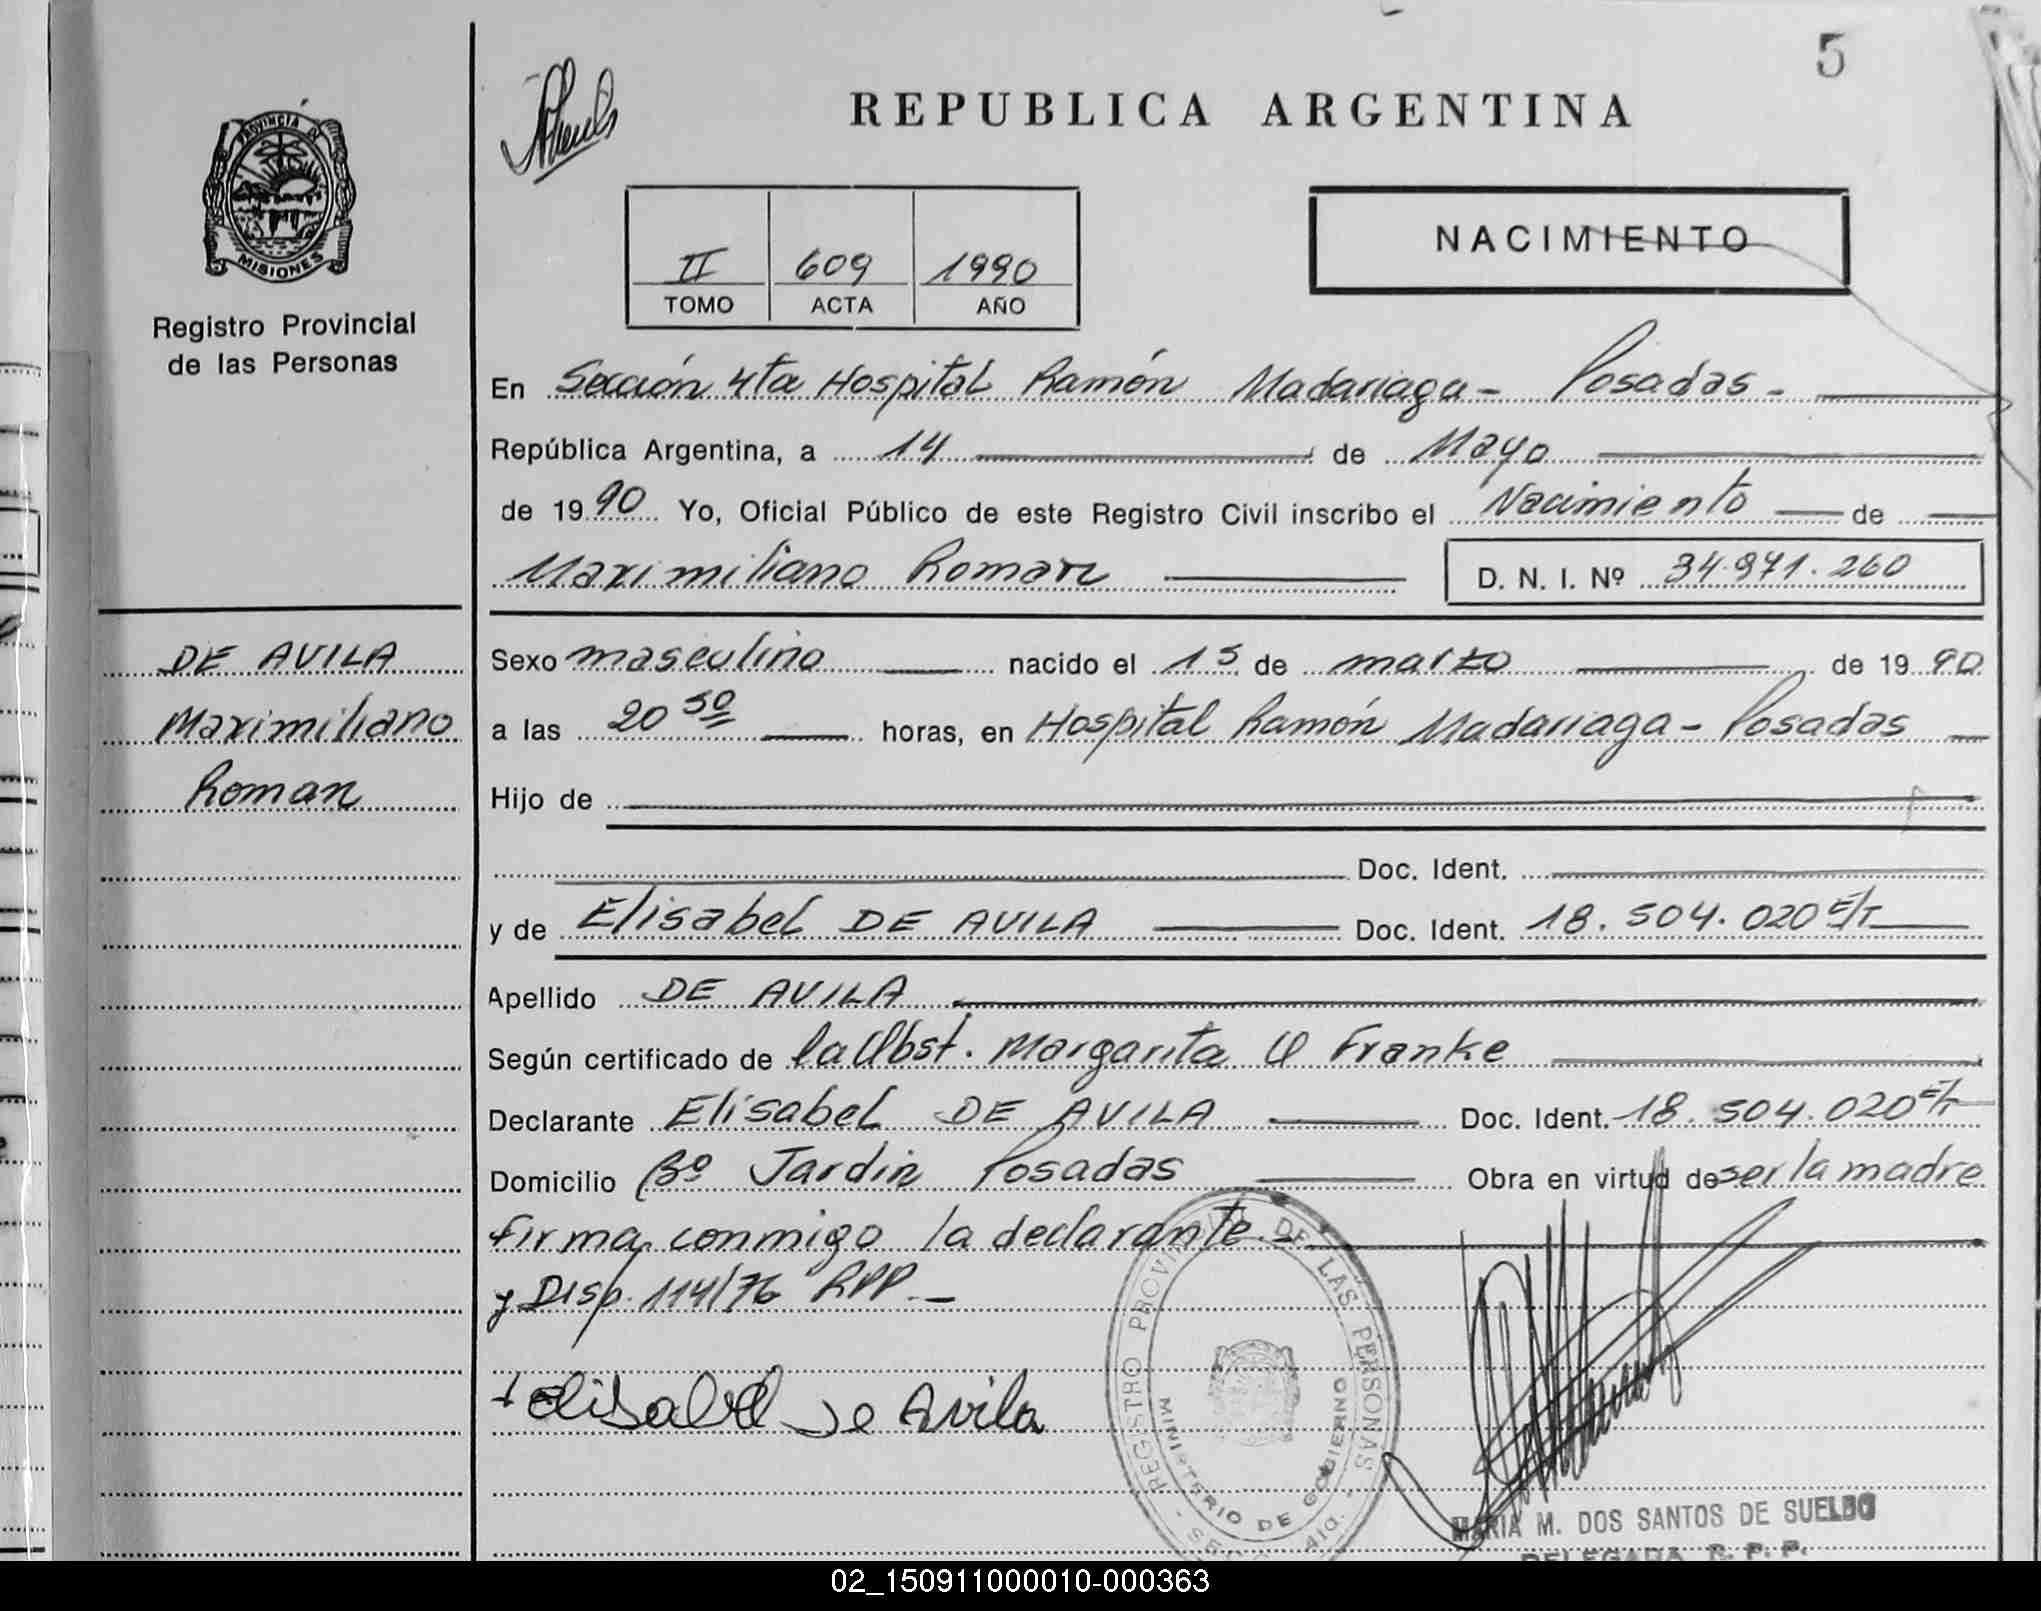 5
REPUBLICA ARGENTINA
PROVINCIA DE
MISIONES
Registro Provincial
de las Personas
II 609 1990
TOMO ACTA AÑO
NACIMIENTO
En Sección 4ta Hospital Ramón Madariaga - Posadas -
República Argentina, a 14 de Mayo
de 1990 Yo, Oficial Público de este Registro Civil inscribo el Nacimiento de
Maximiliano Roman D. N. I. Nº 34.971.260
DE AVILA
Maximiliano
Roman
Sexo masculino nacido el 15 de marzo de 1990
a las 20 30 horas, en Hospital Ramón Madariaga - Posadas
Hijo de
Doc. Ident.
y de Elisabel DE AVILA Doc. Ident. 18.504.020 E/T
Apellido DE AVILA
Según certificado de la Obst. Margarita Franke
Declarante Elisabel DE AVILA Doc. Ident. 18.504.020 E/T
Domicilio Bº Jardin Posadas Obra en virtud de ser la madre
firma conmigo la declarante.-
y Disp. 114/76 RPP.-
Elisabel De Avila
REGISTRO PROVINCIAL DE LAS PERSONAS
MINISTERIO DE GOBIERNO
MARIA M. DOS SANTOS DE SUELDO
DELEGADA R. P. P.
02_150911000010-000363